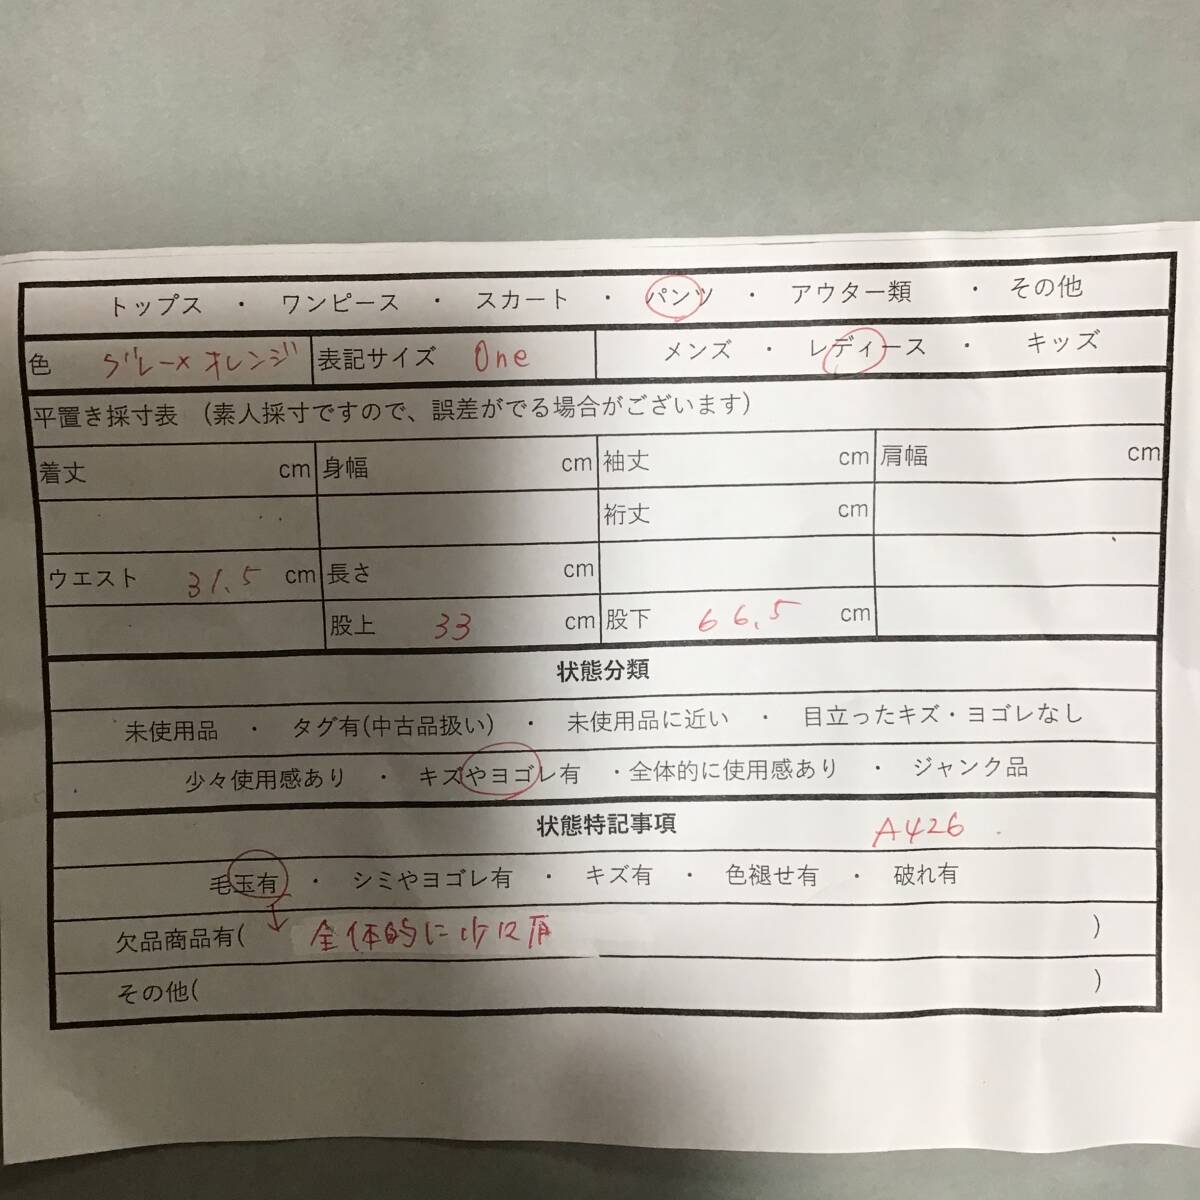 トップス ・ ワンピース ・ スカート ・ パンツ ・ アウター類 ・ その他
色 グレー×オレンジ 表記サイズ One メンズ ・ レディース ・ キッズ
平置き採寸表 （素人採寸ですので、誤差がでる場合がございます）
着丈 cm 身幅 cm 袖丈 cm 肩幅 cm
裄丈 cm
ウエスト 31.5 cm 長さ cm
股上 33 cm 股下 66.5 cm
状態分類
未使用品 ・ タグ有(中古品扱い) ・ 未使用品に近い ・ 目立ったキズ・ヨゴレなし
少々使用感あり ・ キズやヨゴレ有 ・全体的に使用感あり ・ ジャンク品
状態特記事項 A426
毛玉有 ・ シミやヨゴレ有 ・ キズ有 ・ 色褪せ有 ・ 破れ有
欠品商品有( 全体的に )
その他( )